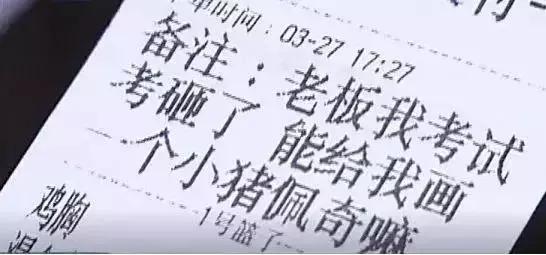 单时间：03-27 17:27
备注：老板我考试
考砸了 能给我画
一个小猪佩奇嘛
1号篮子
鸡胸